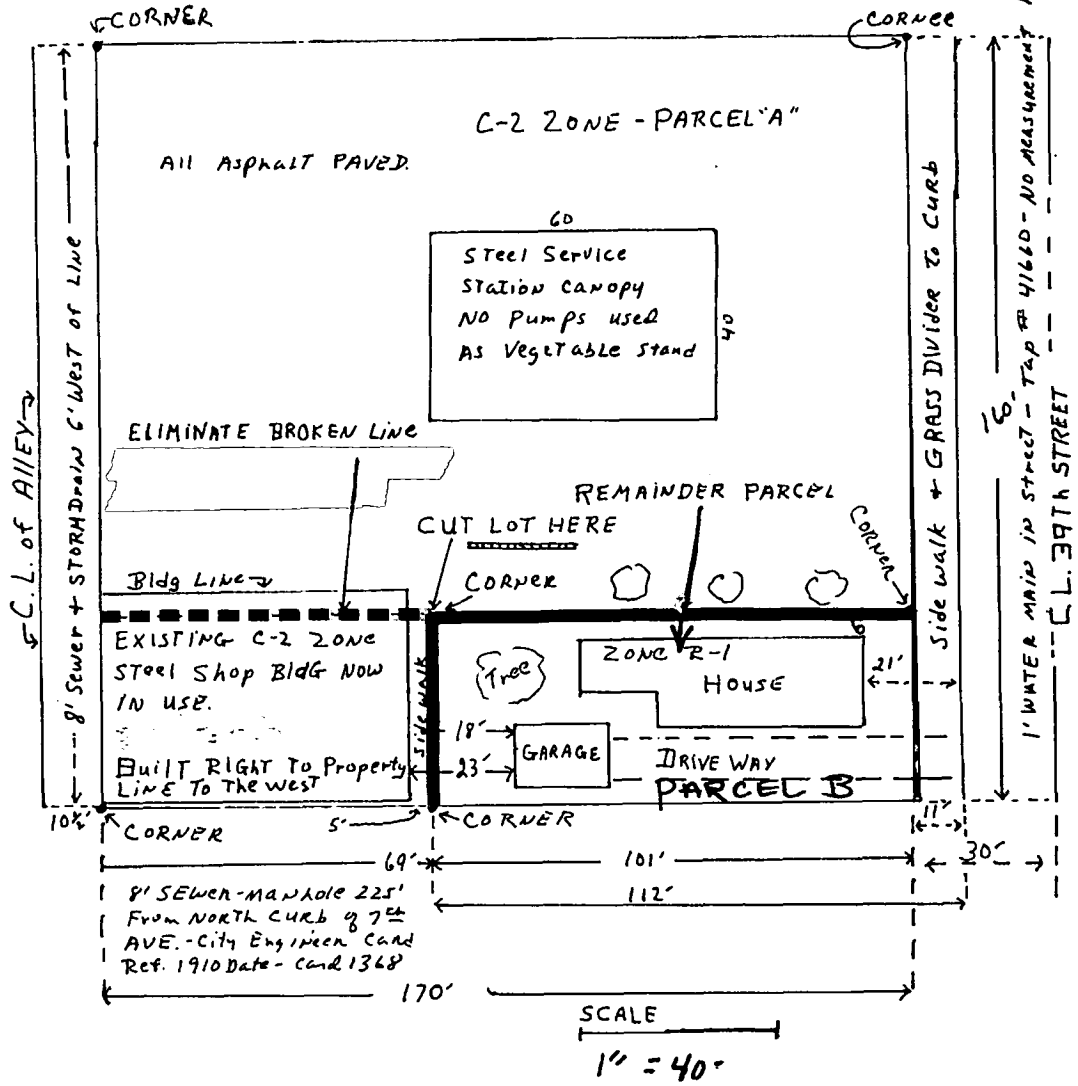 CORNER
CORNER
C-2 ZONE - PARCEL "A"
All Asphalt PAVED.
60
Steel Service
Station Canopy
NO Pumps used
As Vegetable Stand
40
C.L. of Alley
8' Sewer + STORMDrain 6' West of Line
Side walk + GRASS Divider to Curb
160'
1' WATER MAIN IN Street - Tap # 41660 - NO Measurement
C.L. 39Th STREET
ELIMINATE BROKEN LINE
REMAINDER PARCEL
CUT LOT HERE
CORNER
CORNER
Bldg Line
EXISTING C-2 ZONE
STeel Shop BldG NOW
IN USE.
Built RIGHT To Property
LINE To The West
Side WALK
Tree
ZONE R-1
HOUSE
6'
21'
18'
23'
GARAGE
DRIVE WAY
PARCEL B
10½'
CORNER
5'
CORNER
11'
69'
101'
30'
112'
8' SEWER-Manhole 225'
From NORTH CURB of 7th
AVE.-City Engineer Card
Ref. 1910 Date - Card 1368
170'
SCALE
1" = 40'